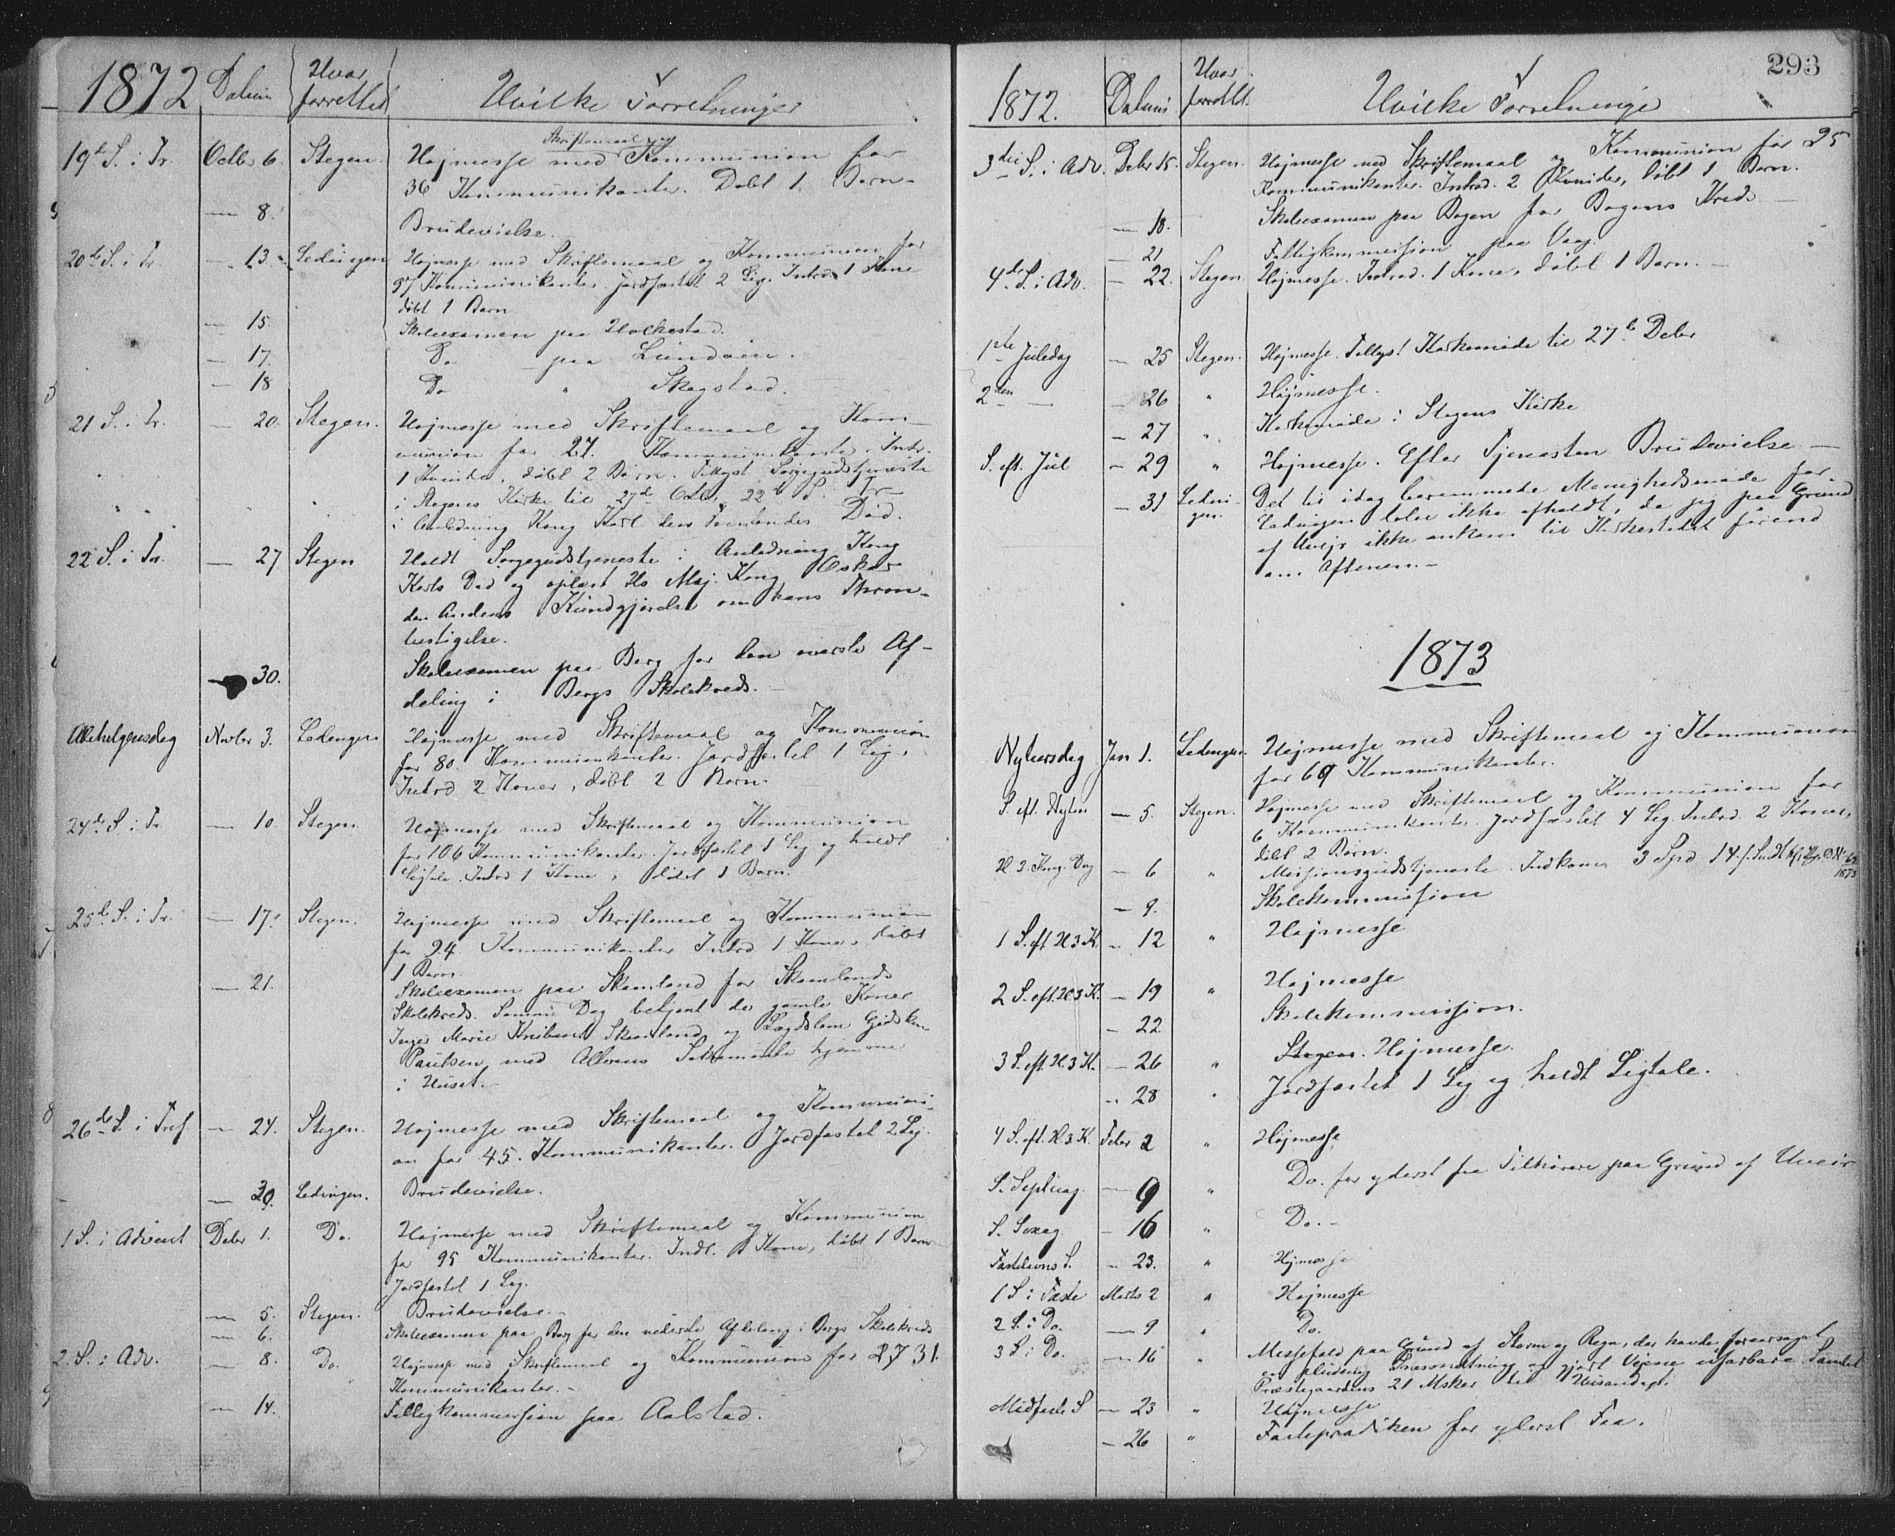 1872 Datum Hvor forrettet Hvilke Forretninger
19de S. i Tr. Octbr 6. Stegen. Højmesse med Skriftemaal og Kommunion for
36 Kommunikanter. Døbt 1 Barn.
— 8. Brudevielse.
20de S. i Tr. — 13. Ledingen Højmesse med Skriftemaal og Kommunion for
37 Kommunikanter. Jordfæstet 2 Lig. Introd. 1 Kone
døbt 1 Barn
— 15. Skoleexamen paa Holkestad.
— 17. Do paa Lundøen.
— 18 Do " Skogstad.
21 S. i Tr. — 20. Stegen. Højmesse med Skriftemaal og Kom-
munion for 27. Kommunikanter. Intr.
1 Kvinde, døbt 2 Børn. Tillyst Sørgegudstjeneste
i Stegens Kirke til 27de Octbr, 22de S. i Tr.
i Anledning Kong Karl den Femtendes Død.
22 S. i Tr. — 27 Stegen Holdt Sørgegudstjeneste i Anledning Kong
Karls Død og oplæst Hs Maj. Kong Oskar
den Andens Kundgjørelse om hans Thron-
bestigelse.
— 30. Skoleexamen paa Berg for den øverste Af-
deling i Bergs Skolekreds.
Allehelgensdag Novbr 3. Ledingen Højmesse med Skriftemaal og Kommunion
for 80 Kommunikanter. Jordfæstet 1 Lig,
Introd 2 Koner, døbt 2 Børn.
24de S. i Tr. — 10. Stegen. Højmesse med Skriftemaal og Kommunion
for 106 Kommunikanter. Jordfæstet 1 Lig og holdt
Ligtale. Introd 1 Kone, døbt 1 Barn.
25de S. i Tr. — 17. Stegen. Højmesse med Skriftemaal og Kommunion
for 24 Kommunikanter Introd 1 Kone, døbt
1 Barn.
— 21. Skoleexamen paa Skamland for Skamlands
Skolekreds. Samme Dag betjent de gamle Koner
Inger Marie Skamland og Lægdslem Gjedsken
Paulsen med Alterens Sakramente hjemme
i Huset.
26de S. i Tref — 24. Stegen. Højmesse med Skriftemaal og Kommuni-
on for 45. Kommunikanter. Jordfæstet 2 Lig.
— 30. Ledingen. Brudevielse.
1 S. i Advent Debr 1. Do. Højmesse med Skriftemaal og Kommunion
for 95 Kommunikanter. Indl. 1 Kone, døbt 1 Barn
Jordfæstet 1 Lig.
— 5. Stegen. Brudevielse.
— 6. Skoleexamen paa Berg for den nederste Afdeling i Bergs Skolekreds
2. S. i Adv. — 8. Do. Højmesse med Skriftemaal og Kommunion for 31.
Kommunikanter.
— 14. Fattigkommission paa Aalstad.
293
1872. Datum Hvor forrettet. Hvilke Forretninger
3die S. i Adv. Debr 15. Stegen. Højmesse med Skriftemaal og Kommunion for 25
Kommunikanter. Introd. 2 Kvinder, døbt 1 Barn.
— 18. Skoleexamen paa Bogen for Bogens Kreds
— 21 Fattigkommission paa Vaag.
4de S. i Adv. — 22. Stegen. Højmesse. Introd. 1 Kone, døbt 1 Barn.
1ste Juledag — 25 Stegen. Højmesse. Tillyst Kirkemøde til 27de Debr
2den — — 26 " Højmesse.
— 27 " Kirkemøde i Stegens Kirke
S. eft. Jul — 29 " Højmesse. Efter Tjenesten Brudevielse
— 31 Ledin-
gen. Det til idag berammede Menighedsmøde for
Ledingen blev ikke afholdt, da jeg paa Grund
af Uvejr ikke ankom til Kirkestedet førend
om Aftenen.
1873
Nytaarsdag Jan 1. Ledingen Højmesse med Skriftemaal og Kommunion
for 69 Kommunikanter.
S. eft. Nytaar — 5. Stegen. Højmesse med Skriftemaal og Kommunion for
6 Kommunikanter. Jordfæstet 4 Lig. Introd. 2 Koner,
døbt 2 Børn.
H. 3. Kong. Dag — 6 " Missionsgudstjeneste. Indkom 3 Spd 14
1873
— 9. Skolekommission
1 S. eft. H. 3 K. — 12 " Højmesse
2 S. eft. H. 3 K. — 19 " Højmesse
— 22 Skolekommission.
3 S. eft. H. 3 K. — 26 " Stegen. Højmesse.
— 28 " Jordfæstet 1 Lig og holdt Ligtale.
4 S. eft. H. 3 K. Febr 2 " Højmesse
S. Septuag. — 9 " Do. for yderst faa Tilhørere paa Grund af Uveir
S. Sexag. — 16 " Do.
Fastelavns S. — 23. " Højmesse
1 S. i Faste Marts 2 " Højmesse
2 S. i Do. — 9 " Do.
3 S. i Do. — 16 " Messefald paa Grund af Storm og Regn, der havde foraarsaget
en pludselig Snesmeltning og gjort Veiene ufarbare. Samlet
Præstegaardens 21 Msker til Husandagt.
Midfaste S — 23 " Højmesse
— 26 " Fasteprædiken for yderst Faa.